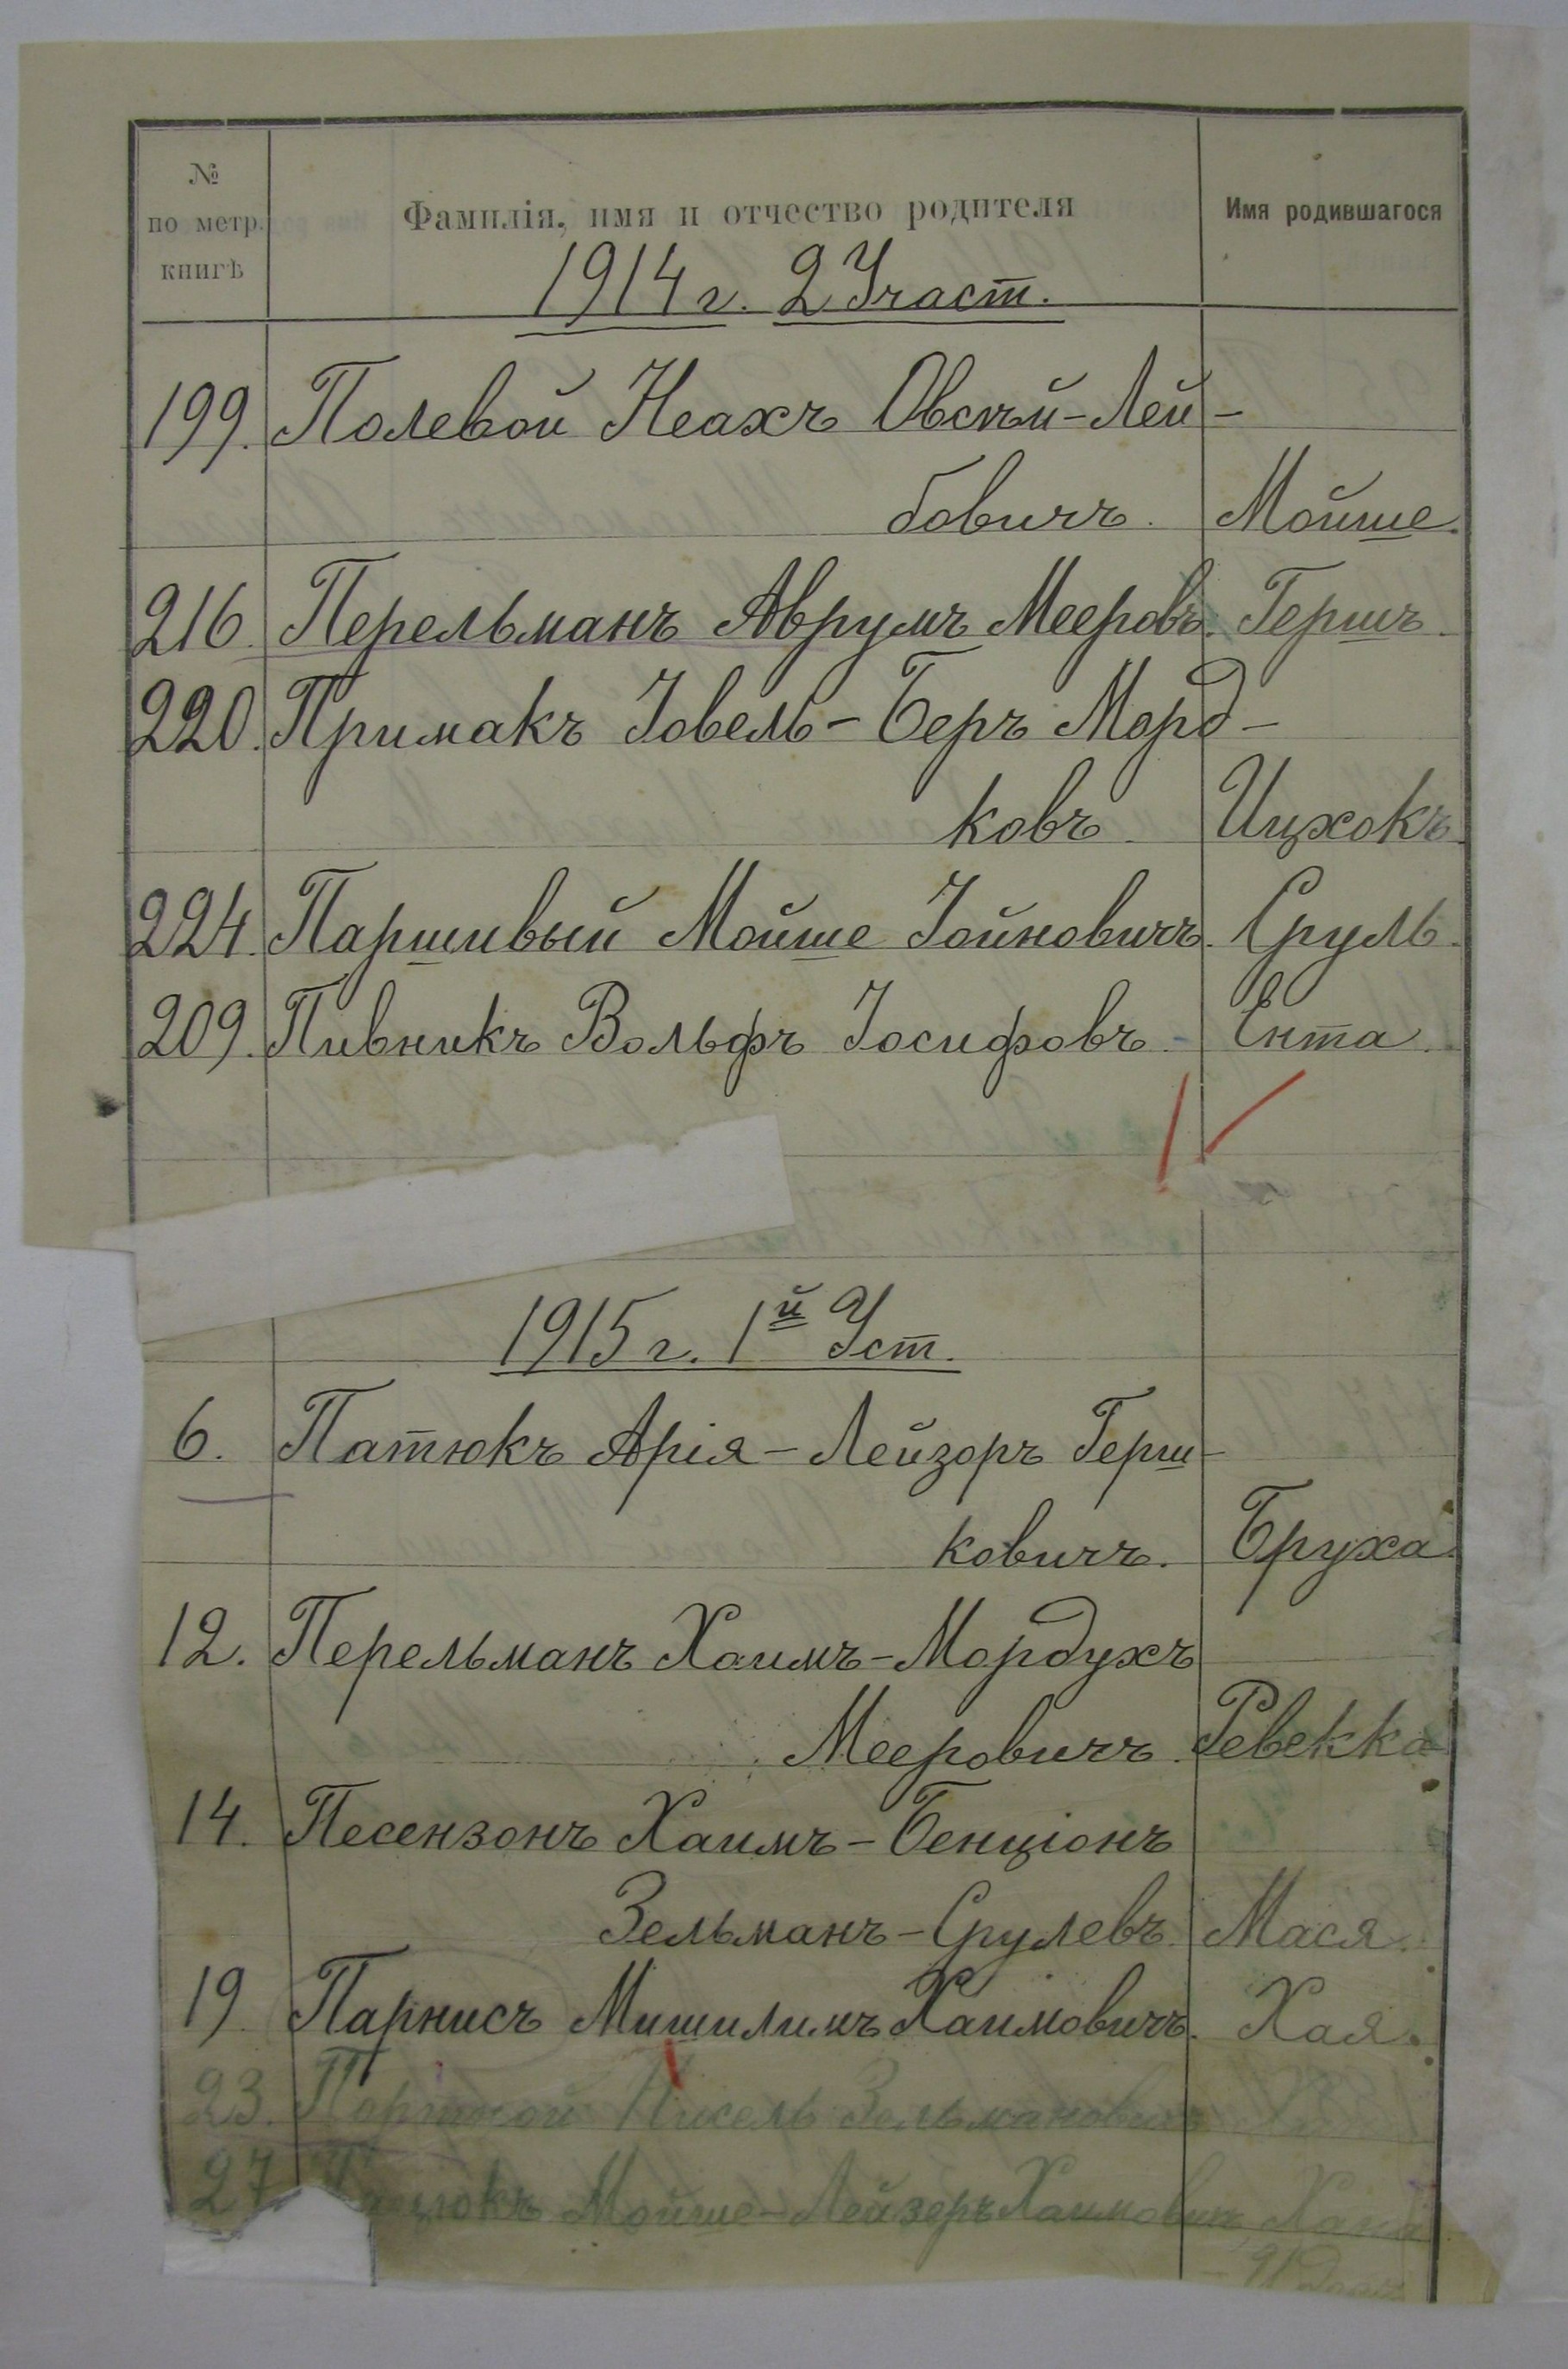 №
по метр.
книгѣ
Фамилія, имя и отчество родителя
Имя родившагося
1914 г. 2 Участ.
199. Полевой Неахъ Овсѣй-Лей-
бовичъ. Мойше.
216. Перельманъ Аврумъ Мееровъ. Гершъ.
220. Примакъ Іовель-Беръ Морд-
ковъ. Ицхокъ.
224. Паршивый Мойше Іойновичъ. Сруль.
209. Пивникъ Вольфъ Іосифовъ - Ента.
1915 г. 1й Уст.
6. Патюкъ Арія-Лейзоръ Герш-
ковичъ. Бруха.
12. Перельманъ Хаимъ-Мордухъ
Мееровичъ. Ревекка
14. Песензонъ Хаимъ-Бенціонъ
Зельманъ-Срулевъ. Мася.
19 Парнисъ Мишилимъ Хаимовичъ. Хая.
23. Портной Нисель Зельмановичъ
27 Мойше-Лейзеръ Хаимович